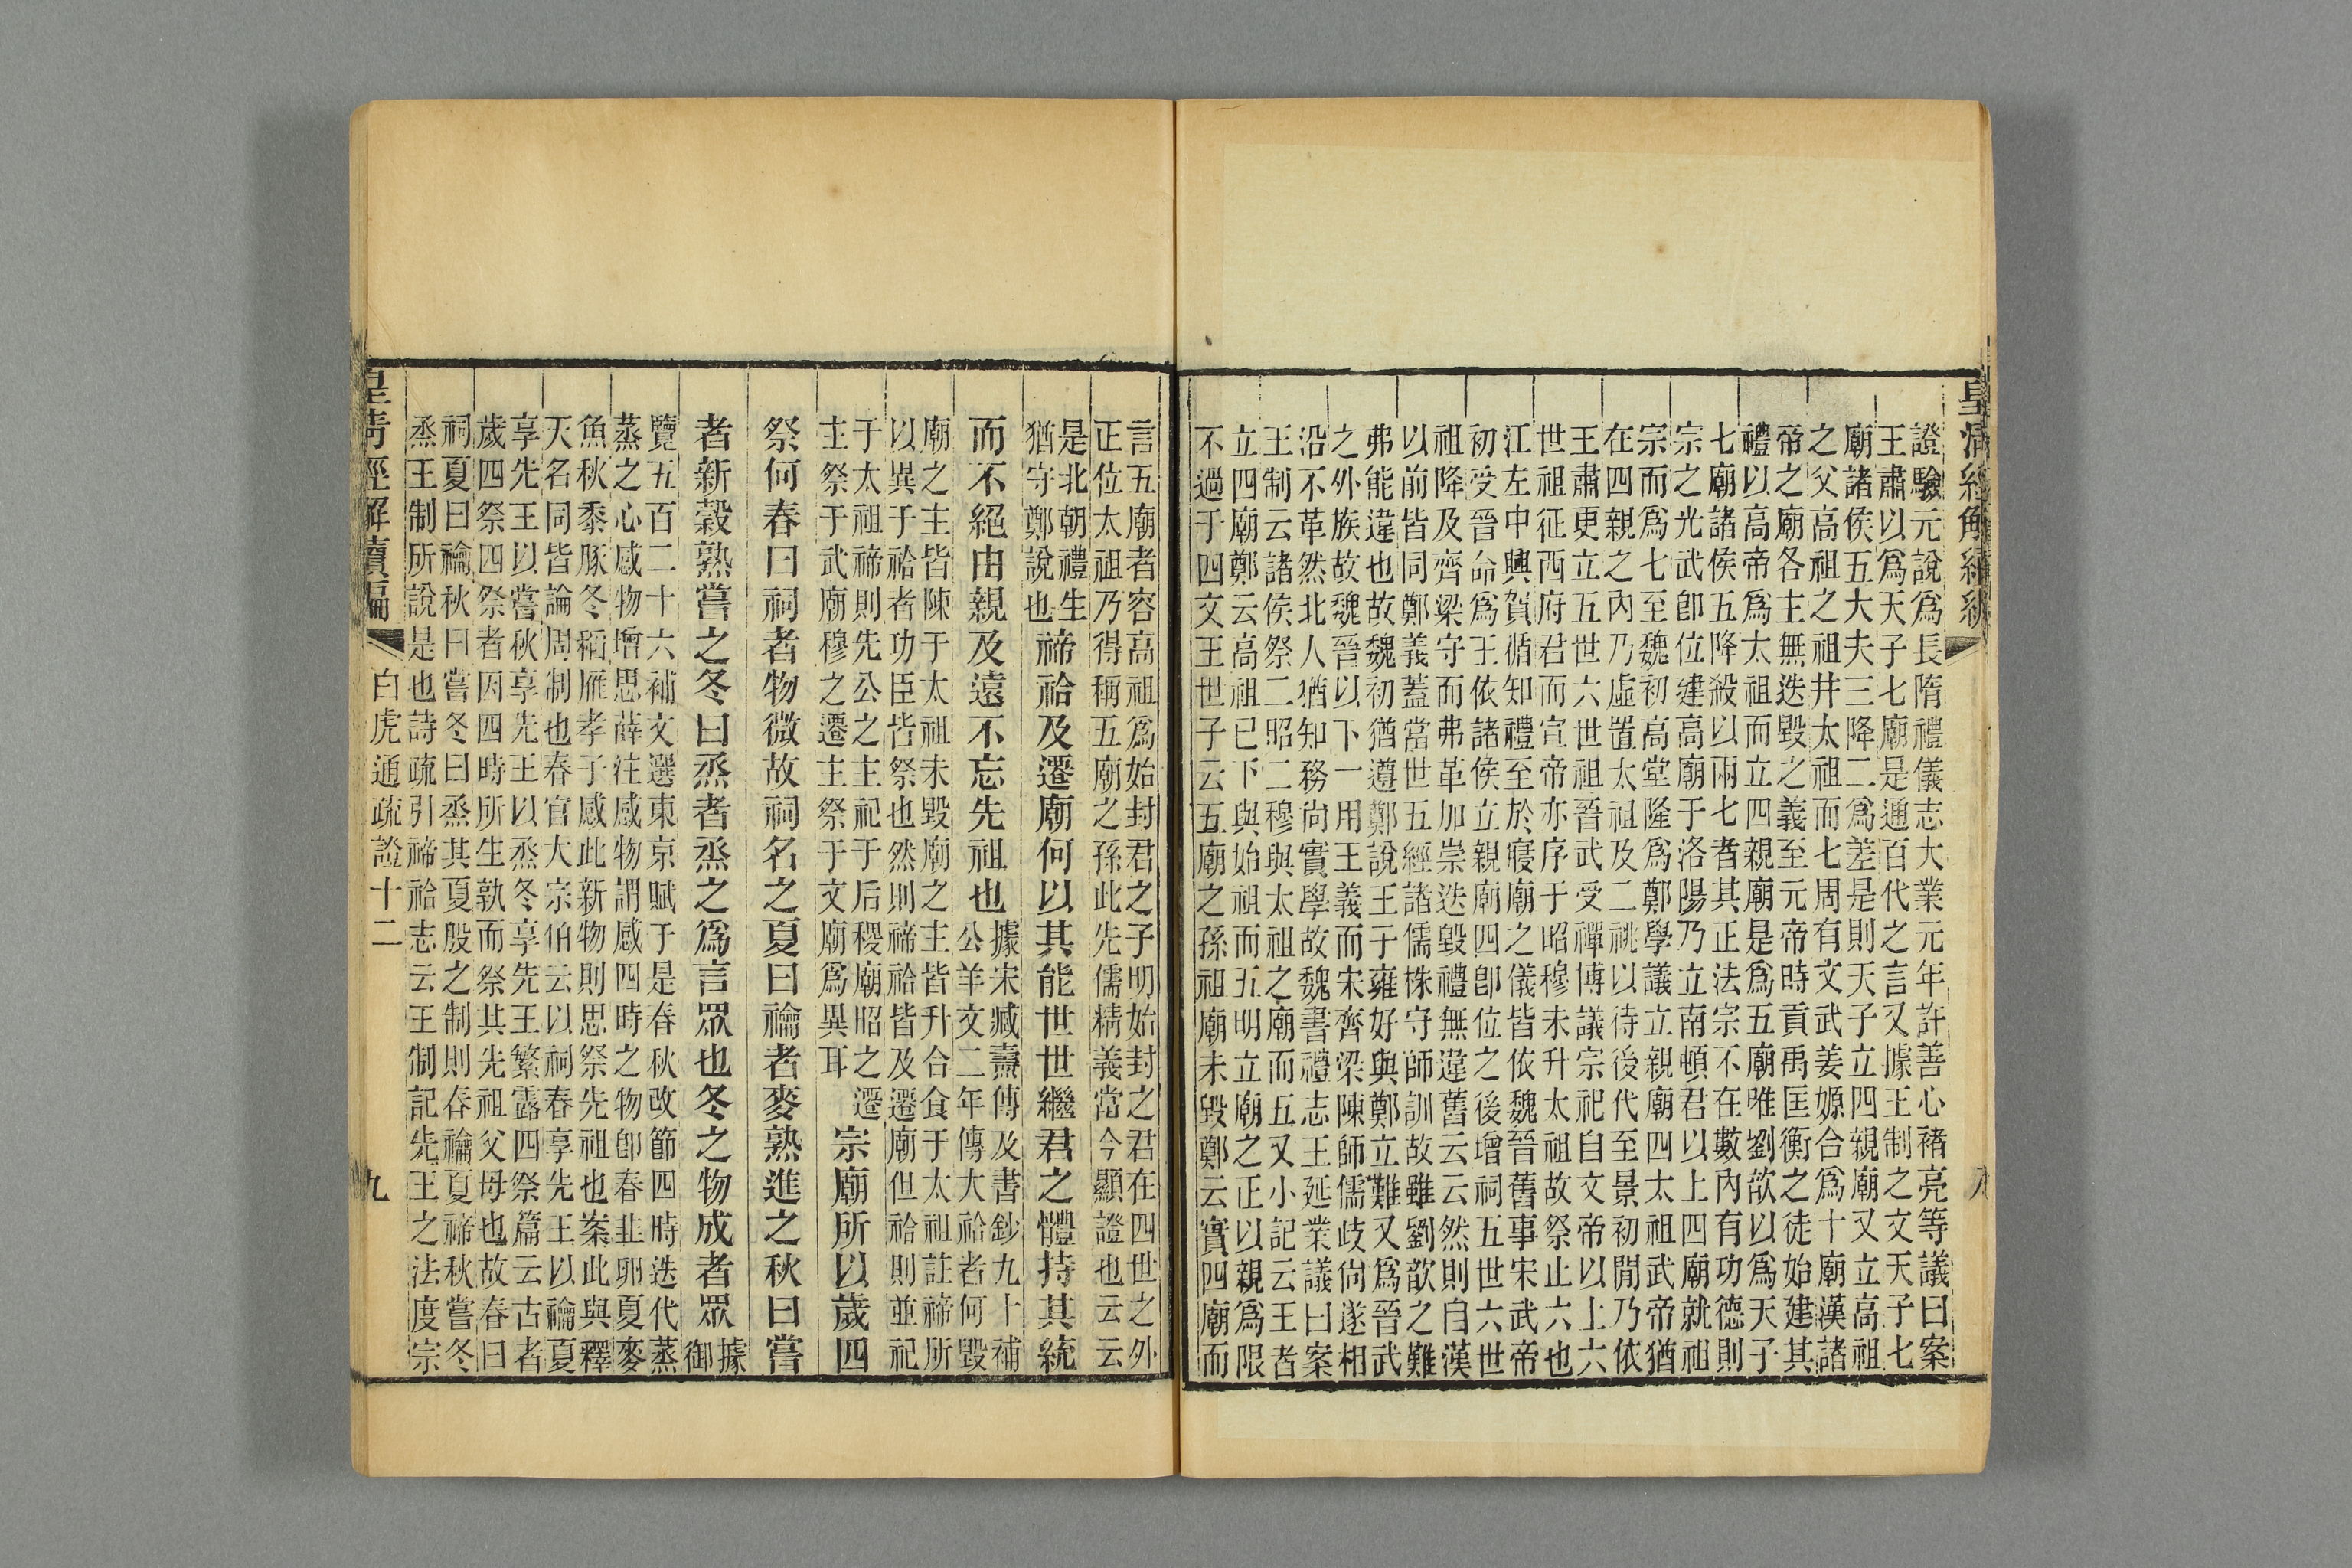 皇清經解續編
八
證驗元說爲長隋禮儀志大業元年許善心褚亮等議曰案
王肅以爲天子七廟是通百代之言又據王制之文天子七
廟諸侯五大夫三降二爲差是則天子立四親廟又立高祖
之父高祖之祖井太祖而七周有文武姜嫄合爲十廟漢諸
帝之廟各主無迭毀之義至元帝時貢禹匡衡之徒始建其
禮以高帝爲太祖而立四親廟是爲五廟唯劉歆以爲天子
七廟諸侯五降殺以兩七者其正法宗不在數內有功德則
宗之光武卽位建高廟于洛陽乃立南頓君以上四廟就祖
宗而爲七至魏初高堂隆爲鄭學議立親廟四太祖武帝猶
在四親之內乃虛置太祖及二祧以待後代至景初閒乃依
王肅更立五世六世祖晉武受禪博議宗祀自文帝以上六
世祖征西府君而宣帝亦序于昭穆未升太祖故祭止六也
江左中興賀循知禮至於寢廟之儀皆依魏晉舊事宋武帝
初受晉命爲王依諸侯立親廟四卽位之後增祠五世六世
祖降及齊梁守而弗革加崇迭毀禮無違舊云云然則自漢
以前皆同鄭義蓋當世五經諸儒株守師訓故雖劉歆之難
弗能違也故魏初猶遵鄭說王于雍好與鄭立難又爲晉武
之外族故魏晉以下一用王義而宋齊梁陳師儒歧尙遂相
沿不革然北人猶知務尙實學故魏書禮志王延業議曰案
王制云諸侯祭二昭二穆與太祖之廟而五又小記云王者
立四廟鄭云高祖已下與始祖而五明立廟之正以親爲限
不過于四文王世子云五廟之孫祖廟未毀鄭云實四廟而
言五廟者容高祖爲始封君之子明始封之君在四世之外
正位太祖乃得稱五廟之孫此先儒精義當今顯證也云云
是北朝禮生
猶守鄭說也
禘祫及遷廟何以其能世世繼君之體持其統
而不絕由親及遠不忘先祖也
據宋臧燾傳及書鈔九十補
公羊文二年傳大祫者何毀
廟之主皆陳于太祖未毀廟之主皆升合食于太祖註禘所
以異于祫者功臣皆祭也然則禘祫皆及遷廟但祫則並祀
于太祖禘則先公之主祀于后稷廟昭之遷
主祭于武廟穆之遷主祭于文廟爲異耳
宗廟所以歲四
祭何春曰祠者物微故祠名之夏曰禴者麥熟進之秋曰嘗
者新穀熟嘗之冬曰烝者烝之爲言眾也冬之物成者眾
據
御
覽五百二十六補文選東京賦于是春秋改節四時迭代蒸
蒸之心感物增思薛注感物謂感四時之物卽春韭卵夏麥
魚秋黍豚冬稻雁孝子感此新物則思祭先祖也案此與釋
天名同皆論周制也春官大宗伯云以祠春享先王以禴夏
享先王以嘗秋享先王以烝冬享先王繁露四祭篇云古者
歲四祭四祭者因四時所生孰而祭其先祖父母也故春曰
祠夏曰禴秋曰嘗冬曰烝其夏殷之制則春禴夏禘秋嘗冬
烝王制所說是也詩疏引禘祫志云王制記先王之法度宗
皇清經解續編
白虎通疏證十二
九